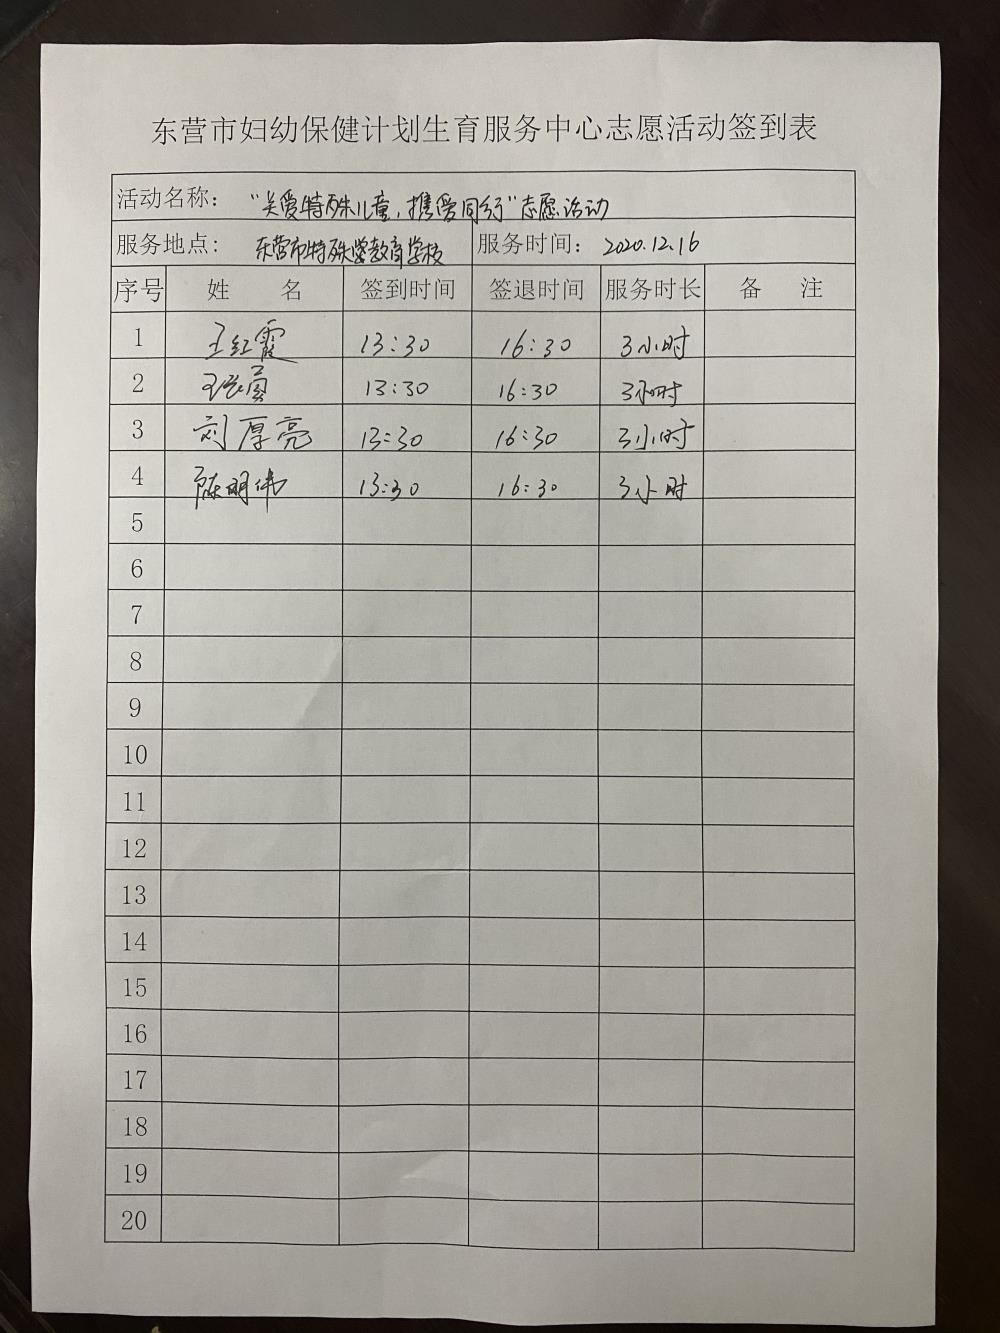 东营市妇幼保健计划生育服务中心志愿活动签到表
活动名称： “关爱特殊儿童，携爱同行”志愿活动
服务地点： 东营市特殊教育学校 服务时间： 2020.12.16
序号 姓 名 签到时间 签退时间 服务时长 备 注
1 王红霞 13:30 16:30 3小时
2 13:30 16:30 3小时
3 刘厚亮 13:30 16:30 3小时
4 陈明伟 13:30 16:30 3小时
5
6
7
8
9
10
11
12
13
14
15
16
17
18
19
20